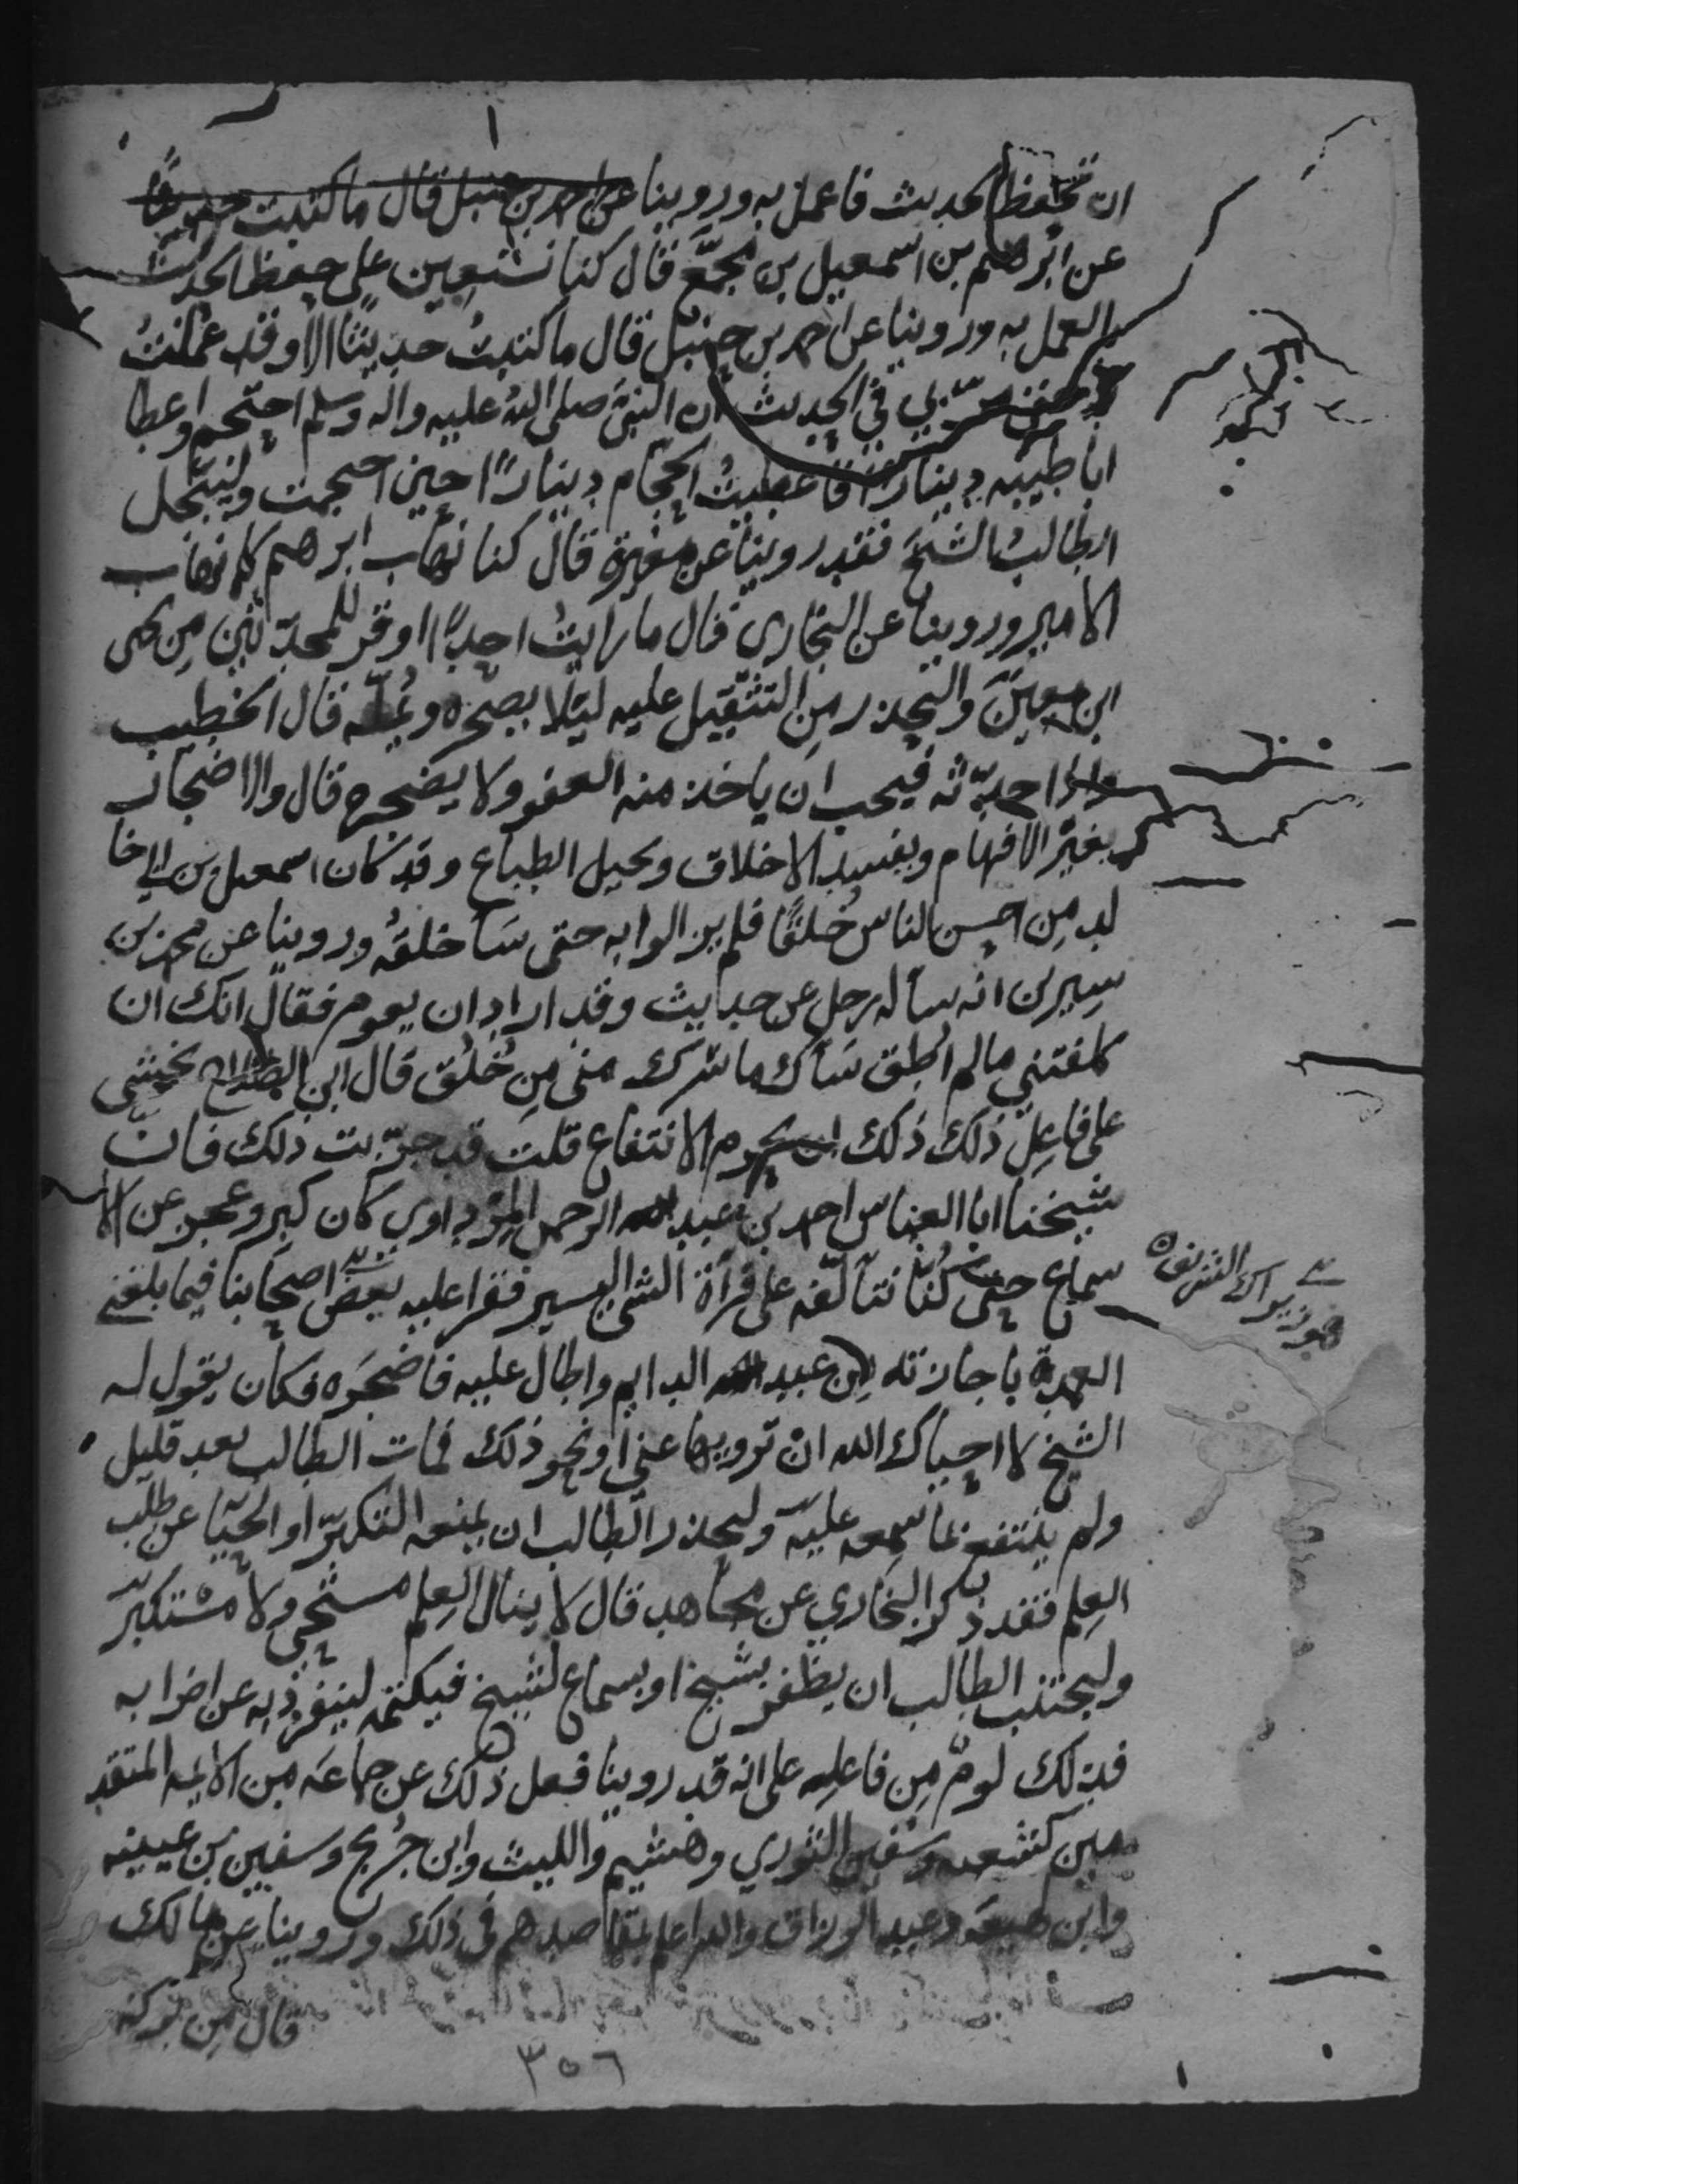 ان تحفظ الحديث فاعمل به وروينا عن احمد بن حنبل قال ما كتبت حديثًا
عن ابرهيم بن اسمعيل بن مجمّع قال كنا نستعين على حفظ الحديث
بالعمل به وروينا عن احمد بن حنبل قال ما كتبتُ حديثًا الا وقد عملتُ
به حتى مرّ بي في الحديث ان النبي صلى الله عليه واله وسلم احتجم واعطا
ابا طيبه دينارًا فاعطيتُ الحجام دينارًا حين احتجمت وليبجّل
الطالبُ الشيخَ فقد روينا عن مغيرة قال كنا نهاب ابرهيم كما نهاب
الامير وروينا عن البخاري قال ما رايتُ احدًا اوقر للمحدّثين من يحيى
ابن معين وليحذر من التثقيل عليه ليلا يضجره ويُملّه قال الخطيب
واذا حدّثه فيجب ان ياخذ منه العفو ولا يضجره قال والاضجار
يغيّر الافهام ويفسد الاخلاق ويحيل الطباع وقد كان اسمعيل بن ابي خا
لد من احسن الناس خُلقًا فلم يزالوا به حتى سَآ خلقهُ وروينا عن محمد بن
سيرين انه سأله رجل عن حديث وقد اراد ان يقوم فقال انك ان
كلفتني مالم اطق سَآك ما سَرك منى من خُلُق قال ابن الصلاح يخشى
على فاعل ذلك ان يحرم الانتفاع قلت قد جرّبت ذلك فانّ
شيخنا ابا العباس احمد بن عبد الرحمن المِرْداوي كان كبر وعجز عن الا
سماع حتى كُنّا نتألّفه على قرآة الشي اليسير فقرا عليه بعض اصحابنا فيما بلغني
العمدة باجازته من ابن عبد الدايم واطال عليه فاضجَره فكان يقول له
الشيخ لا احياك الله ان ترويها عني او نحو ذلك فمات الطالب بعد قليل
ولم ينتفع بما سمعه عليه وليحذر الطالب ان يمنعه التكبرّ او الحيآ عن طلب
العِلم فقد ذكر البخاري عن مجاهد قال لا ينال العِلم مستحي ولا مستكبر
وليجتنب الطالب ان يظفر بشيخ او بسماع لشيخ فيكتمه لينفرد به عن اضرابه
فذلك لومٌ من فاعله على انه قد روينا فعل ذلك عن جماعَه من الايمه المتقد
مين كشعبه وسفين الثوري وهشيم والليث وابن جُريج وسفين بن عيينه
وابن لهيعَه وعبد الرزاق والله اعلم بمقاصدهم في ذلك وروينا عن مالك
قال من بركه
٣٥٦